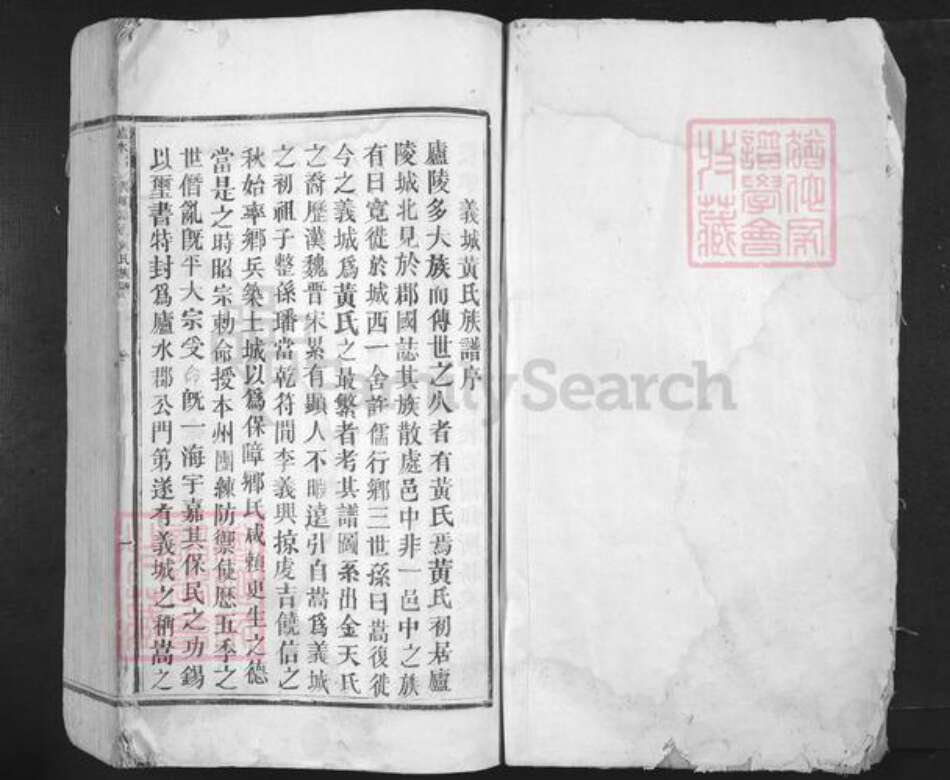 義城黃氏族譜序
廬陵多大族而傳世之久者有黃氏焉黃氏初居廬
陵城北見於郡國誌其族散處邑中非一邑中之族
有曰寬徙於城西一舍許儒行鄉三世孫曰嵩復徙
今之義城爲黃氏之最繁者考其譜圖系出金天氏
之裔歷漢魏晋宋累有顯人不暇遠引自嵩爲義城
之初祖子整孫璠當乾符間李義興掠虔吉饒信之
秋始率鄉兵築土城以爲保障鄉民咸賴更生之德
當是之時昭宗勅命授本州團練防禦使歷五季之
世僭亂既平大宗受命既一海宇嘉其保民之功錫
以璽書特封爲廬水郡公門第遂有義城之稱嵩之
氏族譜
一
猶他家
譜學會
收藏
SimilaritySearch